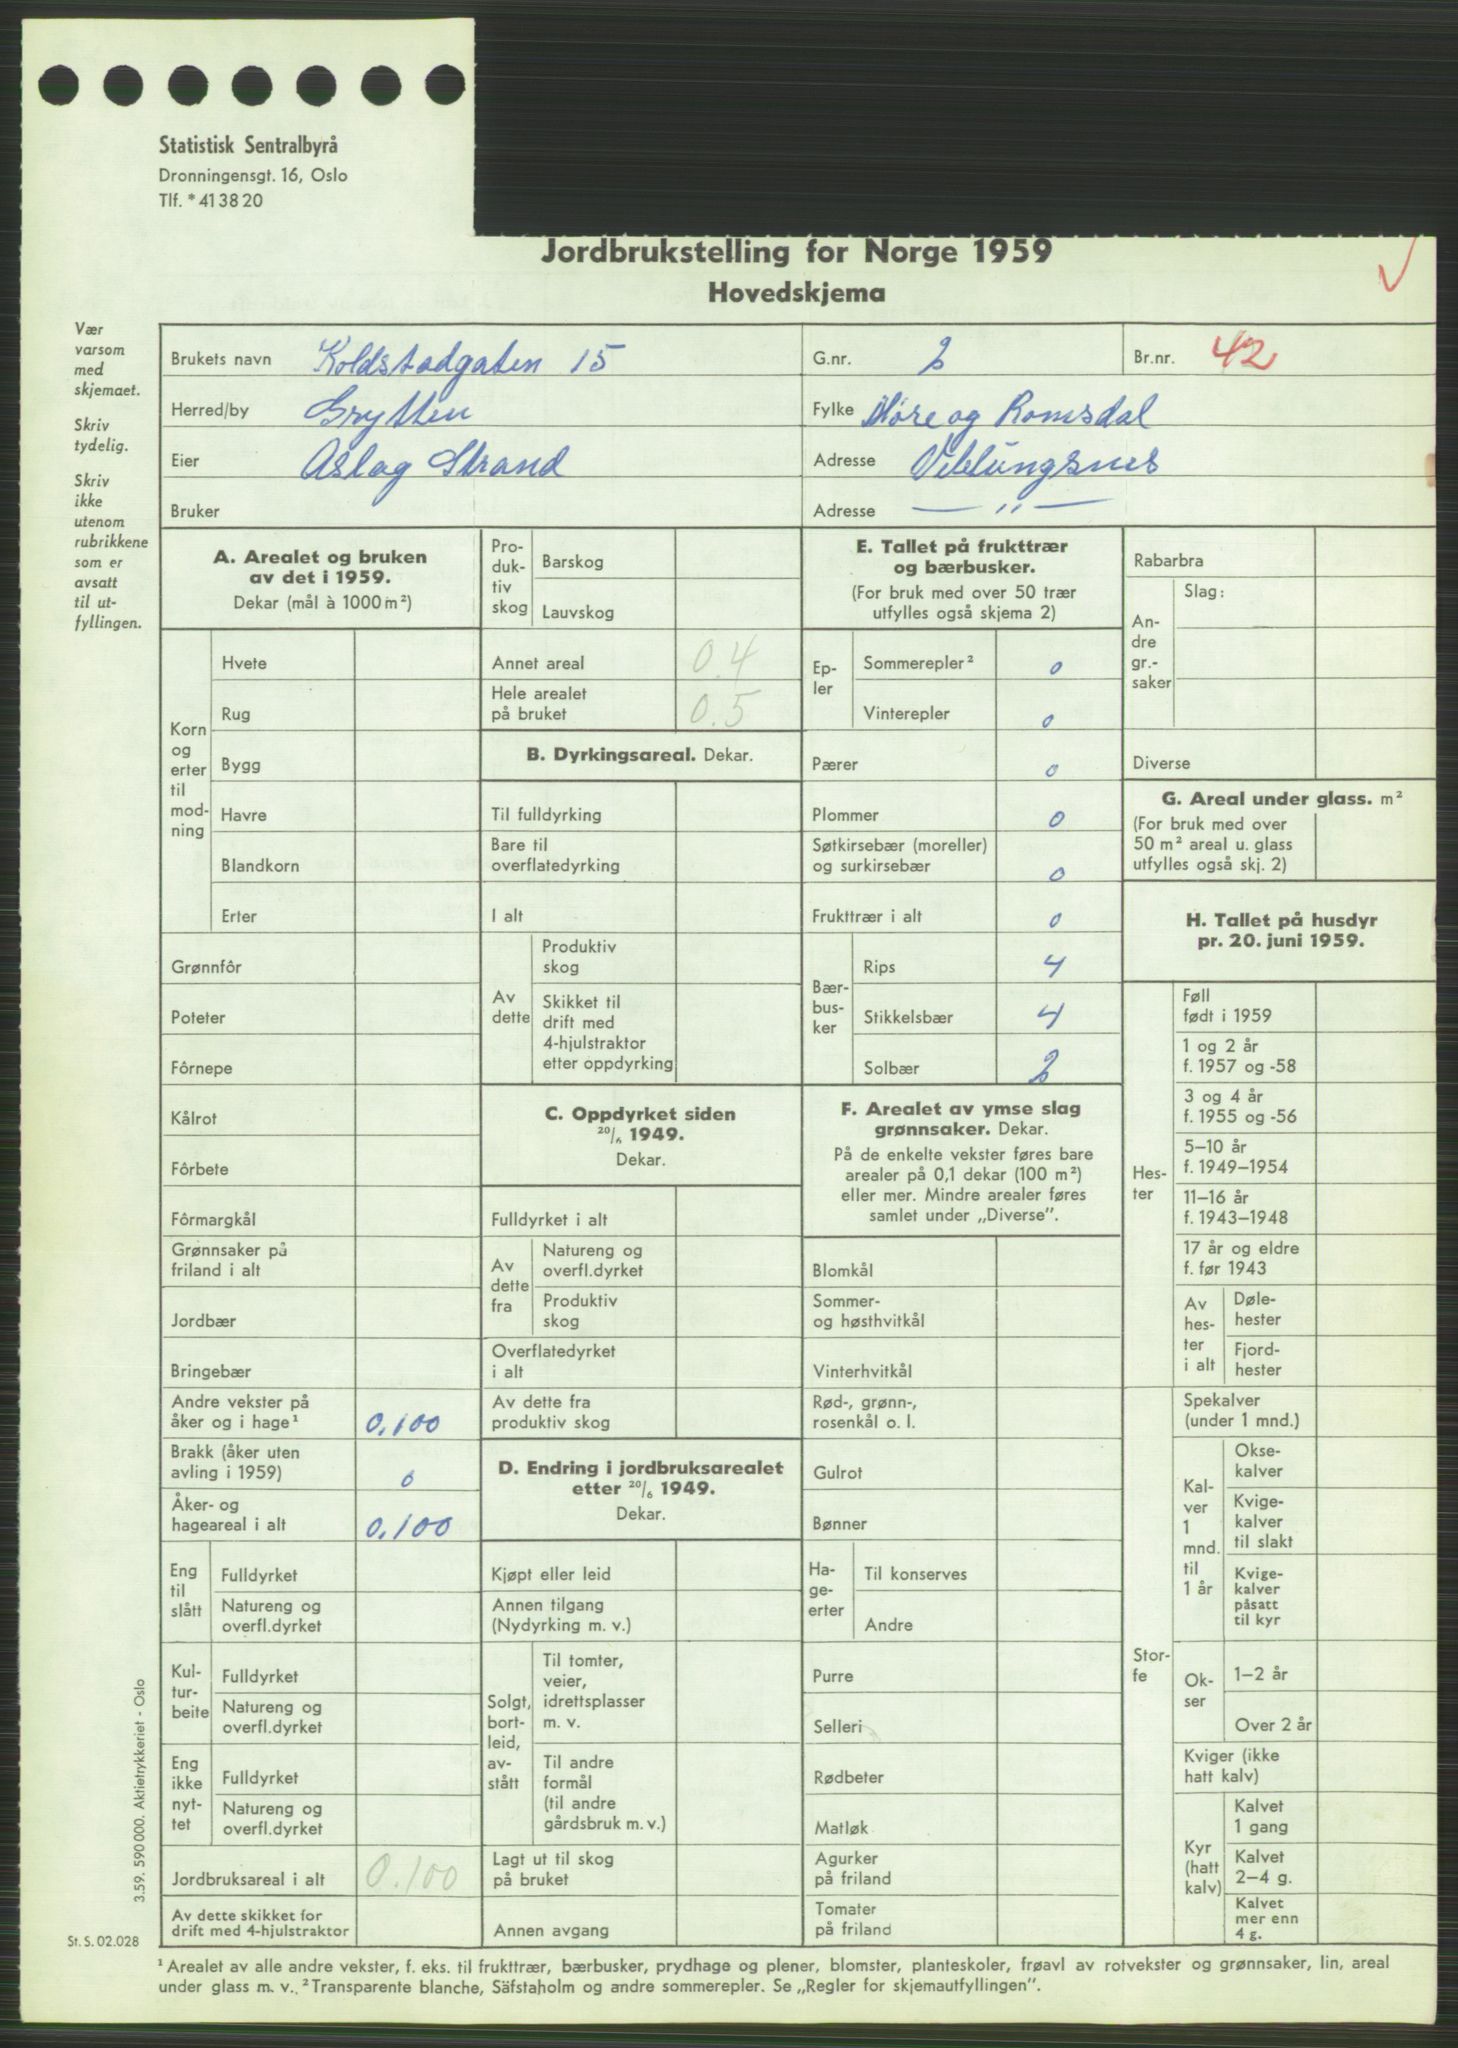 Statistisk Sentralbyrå
Dronningensgt. 16, Oslo
Tlf. * 41 38 20
Jordbrukstelling for Norge 1959
Hovedskjema
Vær
varsom
med
skjemaet.
Skriv
tydelig.
Skriv
ikke
utenom
rubrikkene
som er
avsatt
til ut-
fyllingen.
Brukets navn Koldstadgaten 15
G.nr. 2
Br.nr. 42
Herred/by Grytten
Fylke Møre og Romsdal
Eier Aslag Strand
Adresse Veblungsnes
Bruker
Adresse — " —
A. Arealet og bruken
av det i 1959.
Dekar (mål à 1000 m²)
Korn
og
erter
til
mod-
ning
Hvete
Rug
Bygg
Havre
Blandkorn
Erter
Grønnfôr
Poteter
Fôrnepe
Kålrot
Fôrbete
Fôrmargkål
Grønnsaker på
friland i alt
Jordbær
Bringebær
Andre vekster på
åker og i hage¹ 0.100
Brakk (åker uten
avling i 1959) 0
Åker- og
hageareal i alt 0.100
Eng
til
slått
Fulldyrket
Natureng og
overfl.dyrket
Kul-
tur-
beite
Fulldyrket
Natureng og
overfl.dyrket
Eng
ikke
nyt-
tet
Fulldyrket
Natureng og
overfl.dyrket
Jordbruksareal i alt 0.100
Av dette skikket for
drift med 4-hjulstraktor
Pro-
duk-
tiv
skog
Barskog
Lauvskog
Annet areal 0.4
Hele arealet
på bruket 0.5
B. Dyrkingsareal. Dekar.
Til fulldyrking
Bare til
overflatedyrking
I alt
Av
dette
Produktiv
skog
Skikket til
drift med
4-hjulstraktor
etter oppdyrking
C. Oppdyrket siden
20/6 1949.
Dekar.
Fulldyrket i alt
Av
dette
fra
Natureng og
overfl.dyrket
Produktiv
skog
Overflatedyrket
i alt
Av dette fra
produktiv skog
D. Endring i jordbruksarealet
etter 20/6 1949.
Dekar.
Kjøpt eller leid
Annen tilgang
(Nydyrking m. v.)
Solgt,
bort-
leid,
av-
stått
Til tomter,
veier,
idrettsplasser
m. v.
Til andre
formål
(til andre
gårdsbruk m. v.)
Lagt ut til skog
på bruket
Annen avgang
E. Tallet på frukttrær
og bærbusker.
(For bruk med over 50 trær
utfylles også skjema 2)
Ep-
ler
Sommerepler² 0
Vinterepler 0
Pærer 0
Plommer 0
Søtkirsebær (moreller)
og surkirsebær 0
Frukttrær i alt 0
Bær-
bus-
ker
Rips 4
Stikkelsbær 4
Solbær 2
F. Arealet av ymse slag
grønnsaker. Dekar.
På de enkelte vekster føres bare
arealer på 0,1 dekar (100 m²)
eller mer. Mindre arealer føres
samlet under „Diverse”.
Blomkål
Sommer-
og høsthvitkål
Vinterhvitkål
Rød-, grønn-,
rosenkål o. l.
Gulrot
Bønner
Ha-
ge-
erter
Til konserves
Andre
Purre
Selleri
Rødbeter
Matløk
Agurker
på friland
Tomater
på friland
Rabarbra
An-
dre
gr.-
saker
Slag:
Diverse
G. Areal under glass. m²
(For bruk med over
50 m² areal u. glass
utfylles også skj. 2)
H. Tallet på husdyr
pr. 20. juni 1959.
Hes-
ter
Føll
født i 1959
1 og 2 år
f. 1957 og -58
3 og 4 år
f. 1955 og -56
5–10 år
f. 1949–1954
11–16 år
f. 1943–1948
17 år og eldre
f. før 1943
Av
hes-
ter
i alt
Døle-
hester
Fjord-
hester
Stor-
fe
Spekalver
(under 1 mnd.)
Kal-
ver
1
mnd.
til
1 år
Okse-
kalver
Kvige-
kalver
til slakt
Kvige-
kalver
påsatt
til kyr
Ok-
ser
1–2 år
Over 2 år
Kviger (ikke
hatt kalv)
Kyr
(hatt
kalv)
Kalvet
1 gang
Kalvet
2–4 g.
Kalvet
mer enn
4 g.
3.59. 590 000. Aktietrykkeriet - Oslo
St. S. 02.028
¹ Arealet av alle andre vekster, f. eks. til frukttrær, bærbusker, prydhage og plener, blomster, planteskoler, frøavl av rotvekster og grønnsaker, lin, areal
under glass m. v. ² Transparente blanche, Säfstaholm og andre sommerepler. Se „Regler for skjemautfyllingen”.